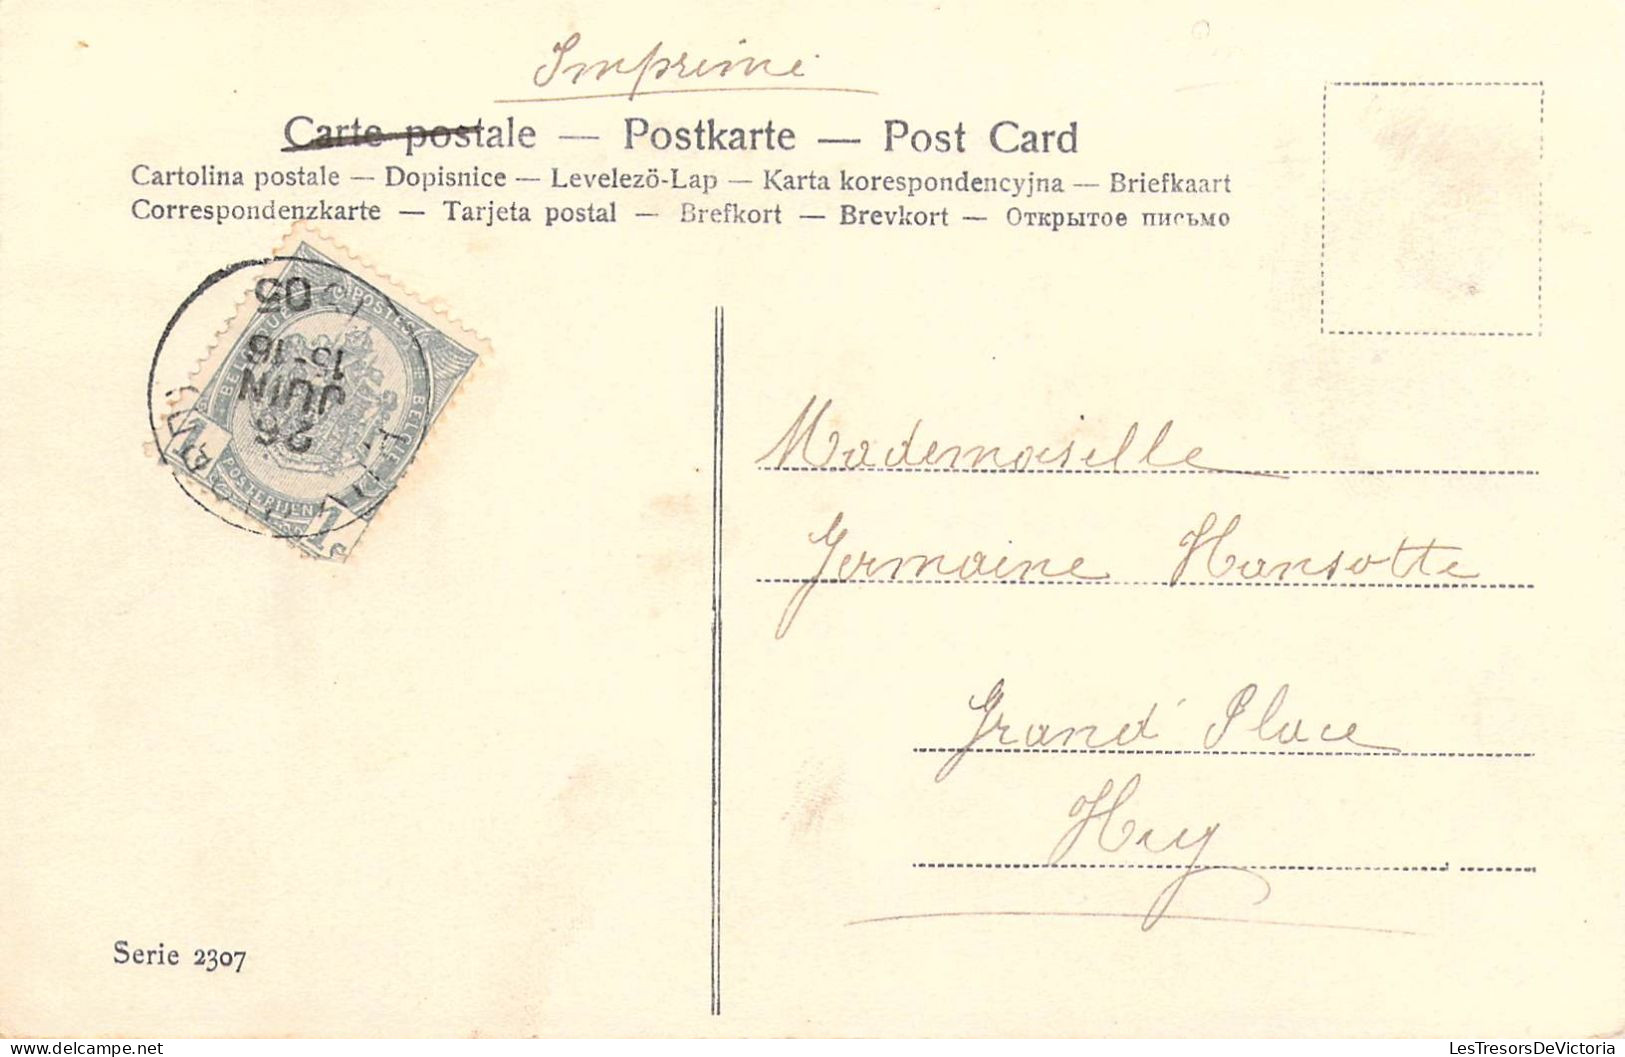 Imprimé
Carte postale — Postkarte — Post Card
Cartolina postale — Dopisnice — Levelezö-Lap — Karta korespondencyjna — Briefkaart
Correspondenzkarte — Tarjeta postal — Brefkort — Brevkort — Открытое письмо
POSTES
BELGIQUE
BELGIE
POSTERIJEN
1c
1c
26
JUIN
15-16
05
Mademoiselle
Germaine Hansotte
Grand' Place
Huy
Serie 2307
LesTresorsDeVictoria